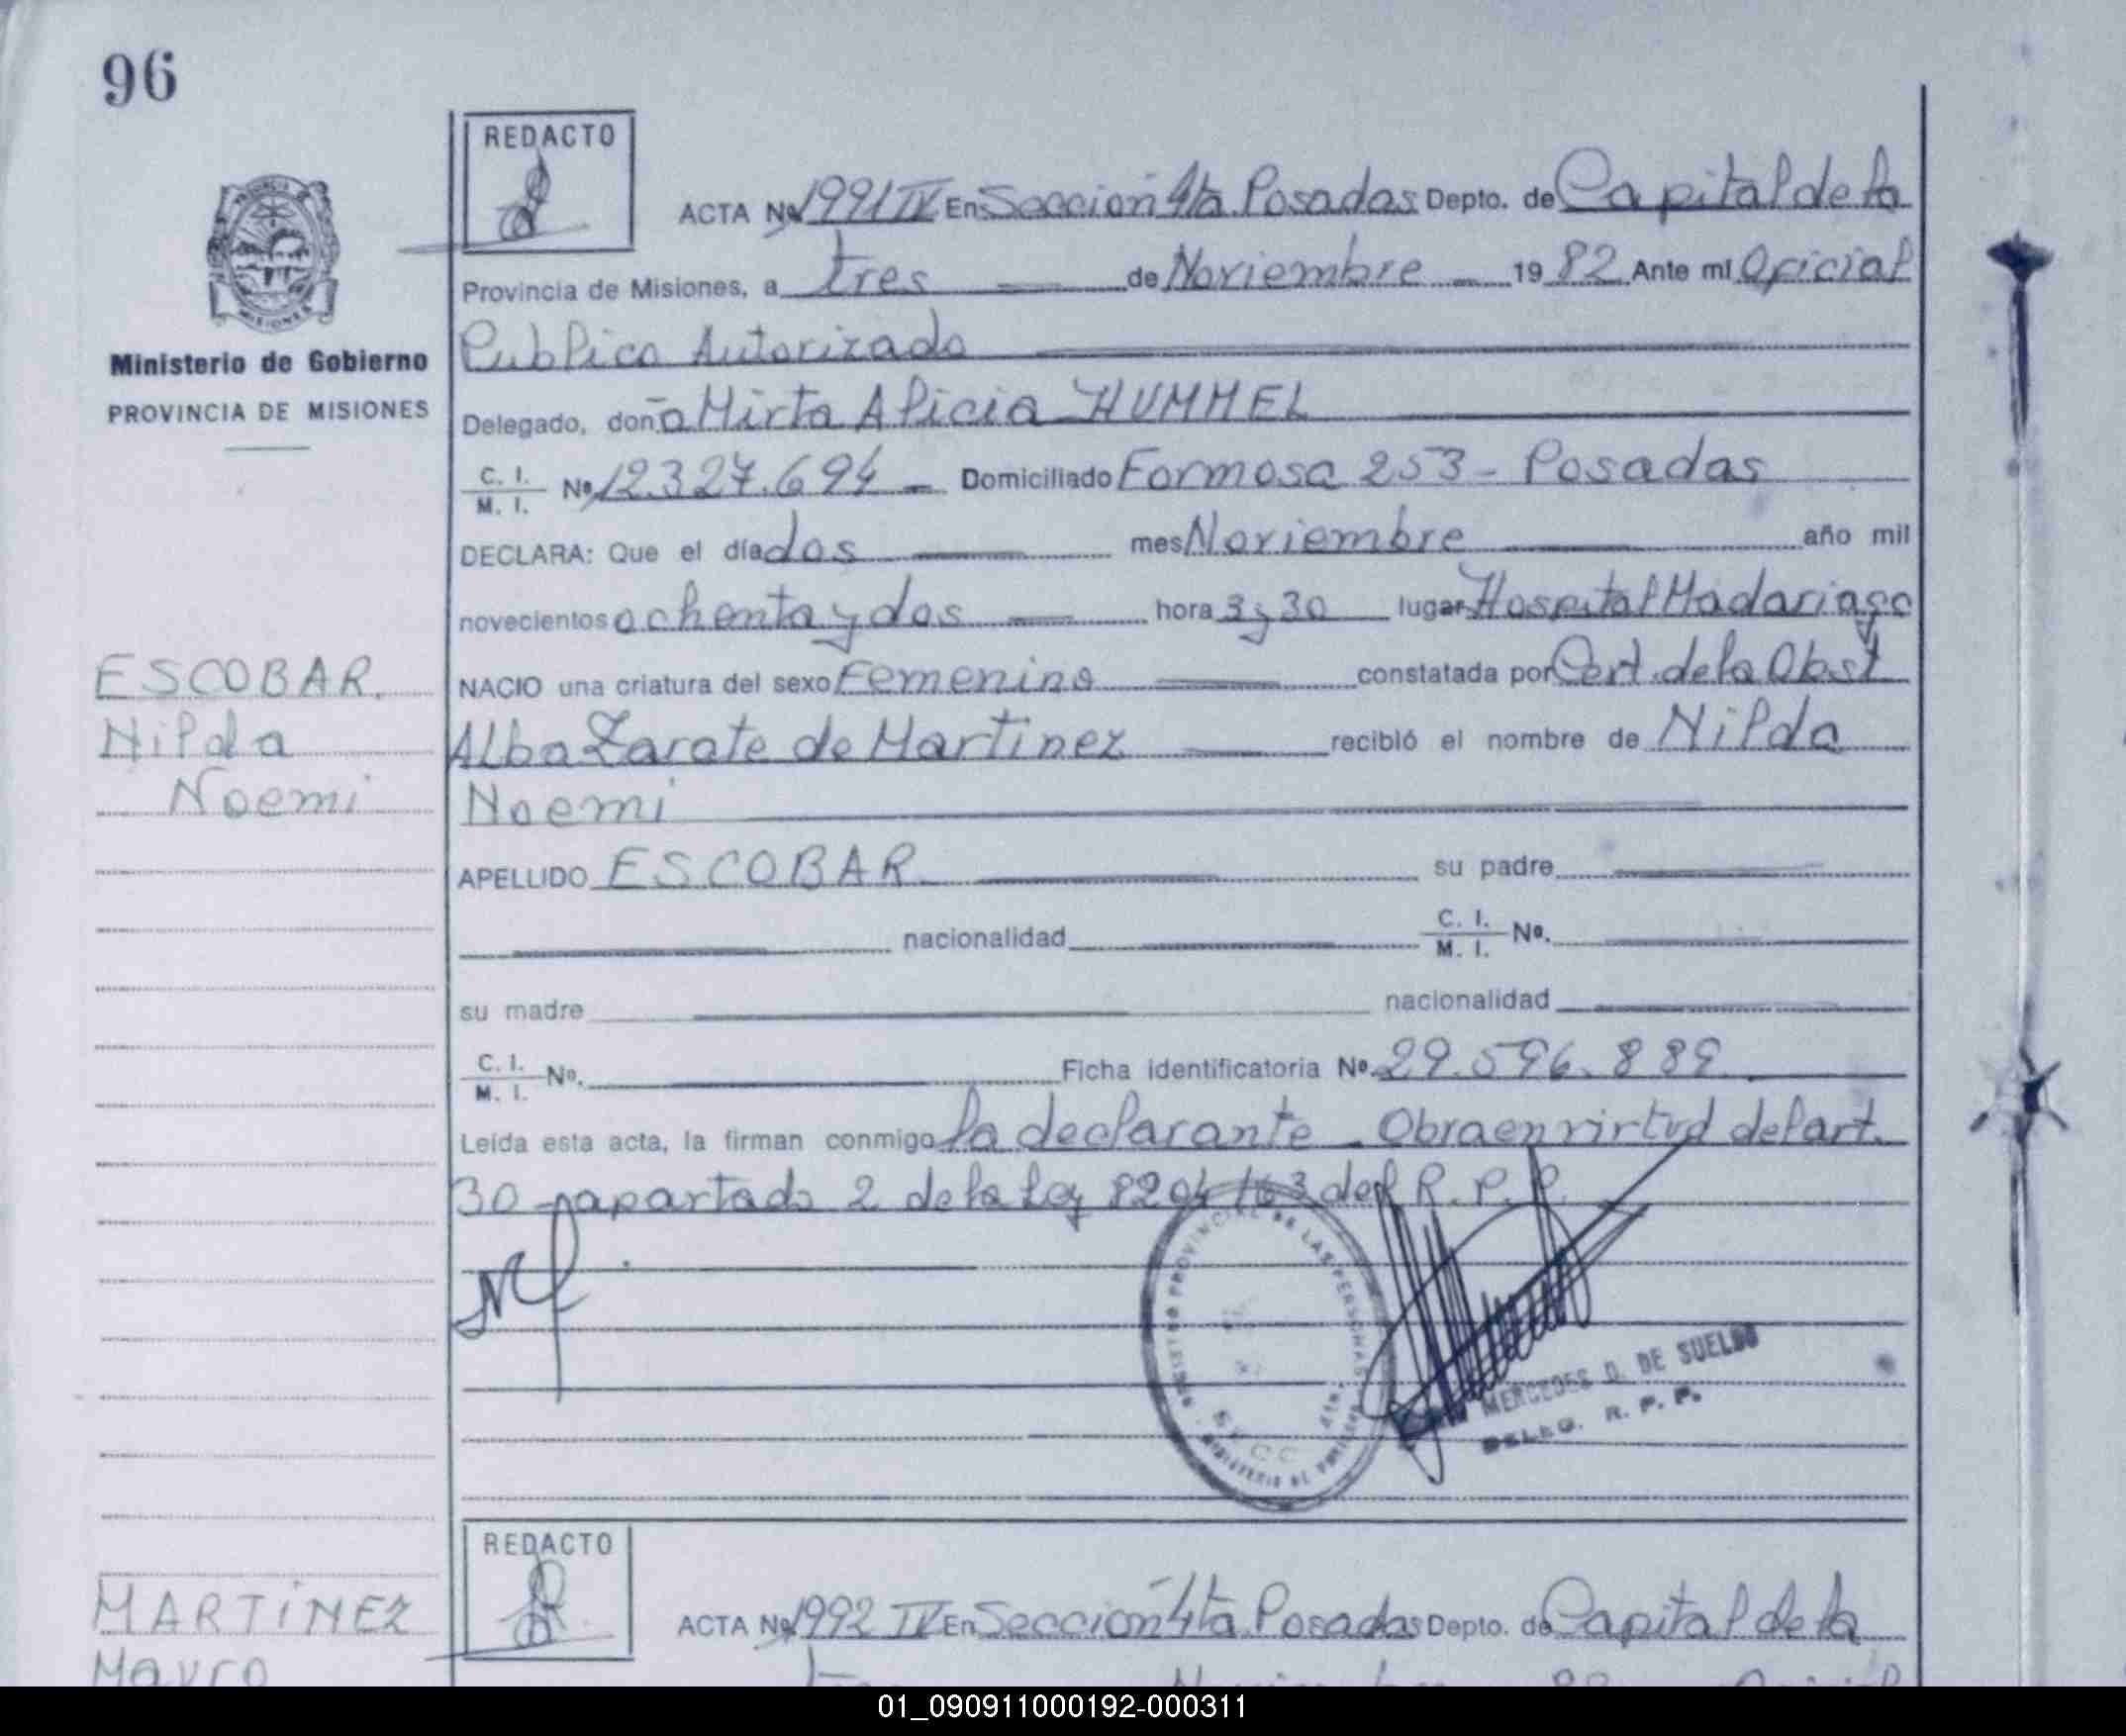 96
REDACTO
ACTA Nº 1991 IV En Sección 4ta Posadas Depto. de Capital de la
Provincia de Misiones, a tres de Noviembre 1982 Ante mí Oficial
Publico Autorizado
Ministerio de Gobierno
PROVINCIA DE MISIONES
Delegado, doña Mirta Alicia HUMMEL
C. I. M. I. Nº 12.327.694 - Domiciliado Formosa 253 - Posadas
DECLARA: Que el día dos mes Noviembre año mil
novecientos ochenta y dos hora 3y30 lugar Hospital Madariaga
NACIO una criatura del sexo Femenino constatada por Cert. de la Obst
Alba Zarate de Martinez recibló el nombre de Nilda
Noemi
ESCOBAR,
Nilda
Noemi
APELLIDO ESCOBAR su padre
nacionalidad C. I. M. I. Nº.
su madre nacionalidad
C. I. M. I. Nº. Ficha identificatoria Nº. 29.596.889
Leída esta acta, la firman conmigo la declarante - Obra en virtud del art.
30 apartado 2 de la Ley 8204/63 del R.P.P.
REGISTRO PROVINCIAL DE LAS PERSONAS
MERCEDES D. DE SUELDO
DELEG. R. P. P.
REDACTO
ACTA Nº 1992 IV En Sección 4ta Posadas Depto. de Capital de la
MARTINEZ
Mauro
01_090911000192-000311